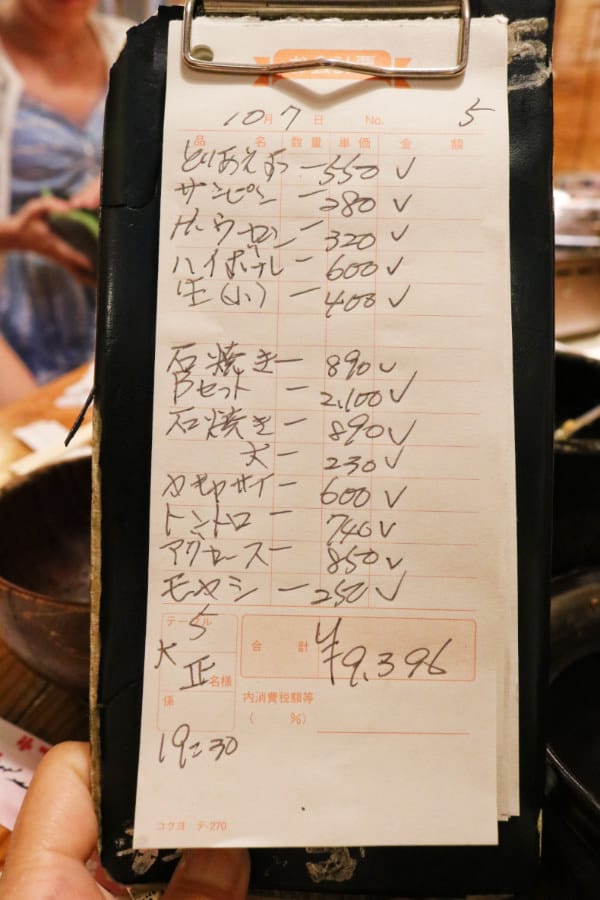 お会計票
10月7日 No. 5
品名 数量 単価 金額
とりあえず ー 550 ✓
サンピン ー 280 ✓
ー 320 ✓
ハイボール ー 600 ✓
生(小) ー 400 ✓
石焼き ー 890 ✓
Bセット ー 2,100 ✓
石焼き ー 890 ✓
大 ー 230 ✓
ヤキヤサイ ー 600 ✓
トントロ ー 740 ✓
アグーロース ー 850 ✓
モヤシ ー 250 ✓
テーブル 5
合計 ¥9,396
大 正 名様
係
内消費税額等
( %)
19:30
コクヨ テ-270